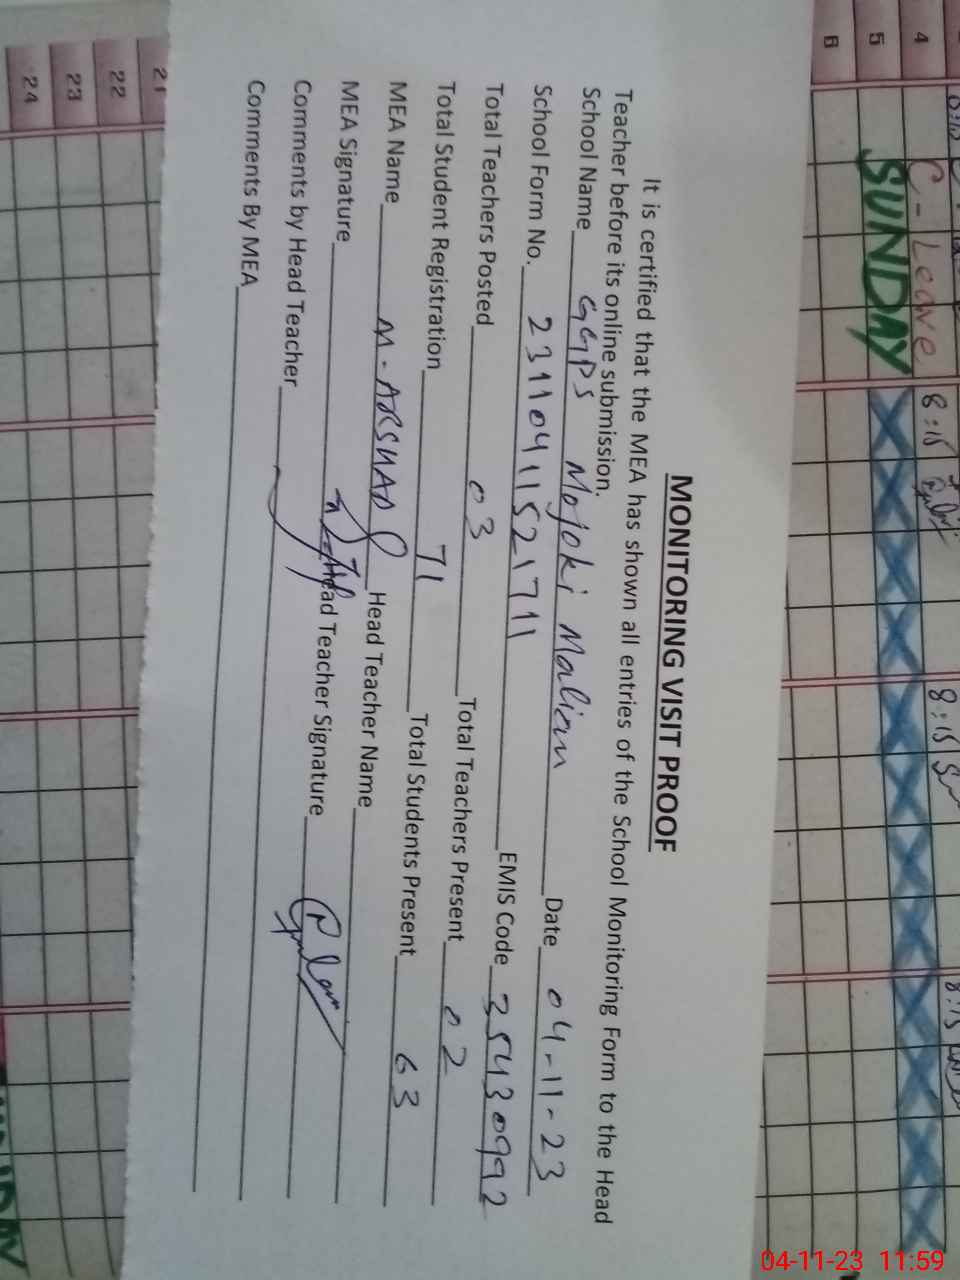 MONITORING VISIT PROOF
It is certified that the MEA has shown all entries of the School Monitoring Form to the Head
Teacher before its online submission.
School Name GGPS Mojoki Malian Date 04-11-23
School Form No. 23110411521711 EMIS Code 35430992
Total Teachers Posted 03 Total Teachers Present 02
Total Student Registration 71 Total Students Present 63
MEA Name M. ARSHAD Head Teacher Name
MEA Signature Head Teacher Signature
Comments by Head Teacher
Comments By MEA
4 C-Leave 8:15 8:15 8:15
5 SUNDAY
6
21
22
23
24
04-11-23 11:59